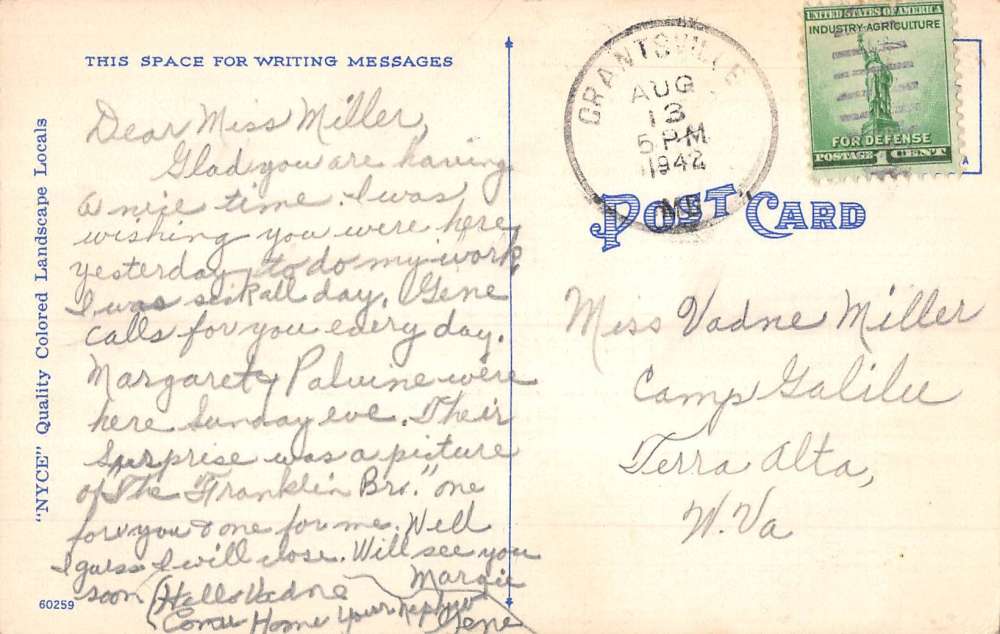 THIS SPACE FOR WRITING MESSAGES
Dear Miss Miller,
Glad you are having
a nice time. I was
wishing you were here
yesterday to do my work,
I was sick all day. Gene
calls for you every day.
Margaret & Paluine were
here Sunday eve. Their
surprise was a picture
of "The Franklin Bro." one
for you & one for me. Well
I guess I will close. Will see you
soon
Margie
Hello Vadne
Come Home Your nephew
Gene
"NYCE" Quality Colored Landscape Locals
60259
GRANTSVILLE
AUG
13
5 PM
1942
MD
UNITED STATES OF AMERICA
INDUSTRY-AGRICULTURE
FOR DEFENSE
POSTAGE 1 CENT
A
POST CARD
Miss Vadne Miller
Camp Galilee
Terra Alta,
W. Va